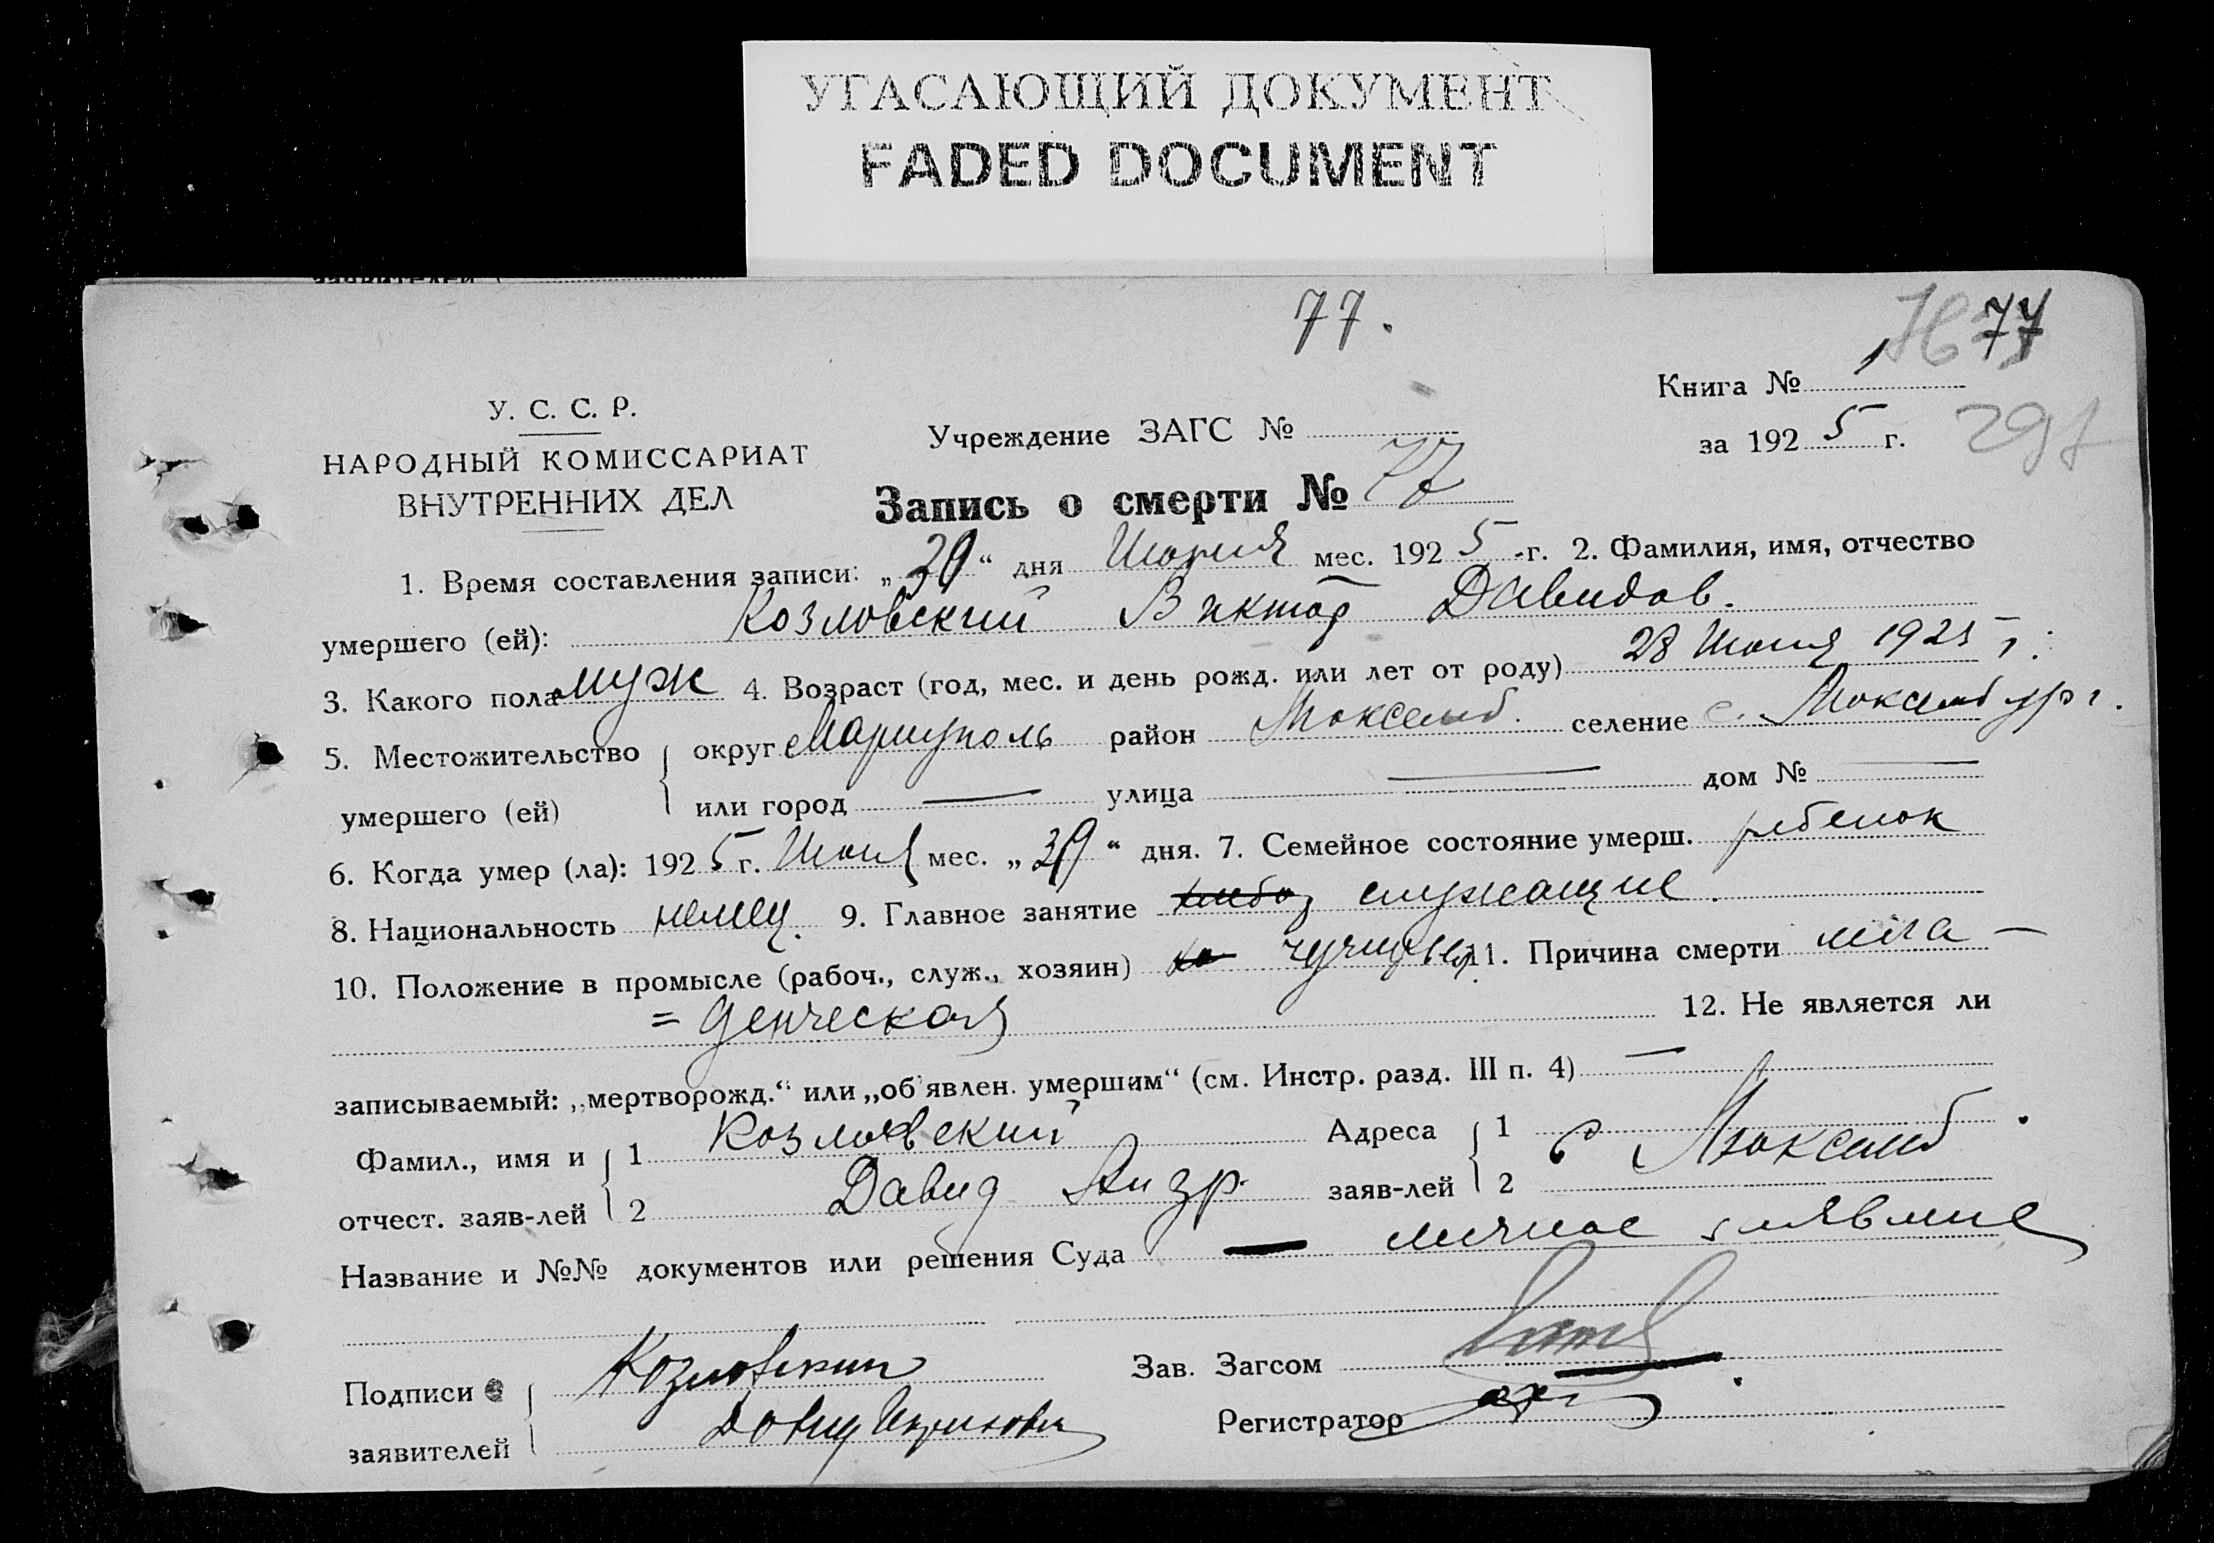 УГАСАЮЩИЙ ДОКУМЕНТ
FADED DOCUMENT
77.
77
Книга № 1
У. С. С. Р.
НАРОДНЫЙ КОМИССАРИАТ
ВНУТРЕННИХ ДЕЛ
Учреждение ЗАГС №
за 1925 г.
297
Запись о смерти № 77
1. Время составления записи: „29“ дня мес. 1925 г. 2. Фамилия, имя, отчество
умершего (ей): Козловский Виктор Давидов.
3. Какого пола муж 4. Возраст (год, мес. и день рожд. или лет от роду) 28 Июня 1925 г.
5. Местожительство округ Мариуполь район Люксемб. селение с. Люксембург.
умершего (ей) или город — улица — дом № —
6. Когда умер (ла): 1925 г. Июня мес. „29“ дня. 7. Семейное состояние умерш. ребенок
8. Национальность немец. 9. Главное занятие служащие.
10. Положение в промысле (рабоч., служ., хозяин) 11. Причина смерти мла-
=денческая 12. Не является ли
записываемый: „мертворожд.“ или „об'явлен. умершим“ (см. Инстр. разд. III п. 4) —
Фамил., имя и 1 Козловский Адреса 1
отчест. заяв-лей 2 Давид Андр. заяв-лей 2 с Люксемб.
Название и №№ документов или решения Суда личное
Подписи Козловский Зав. Загсом
заявителей Давид Регистратор